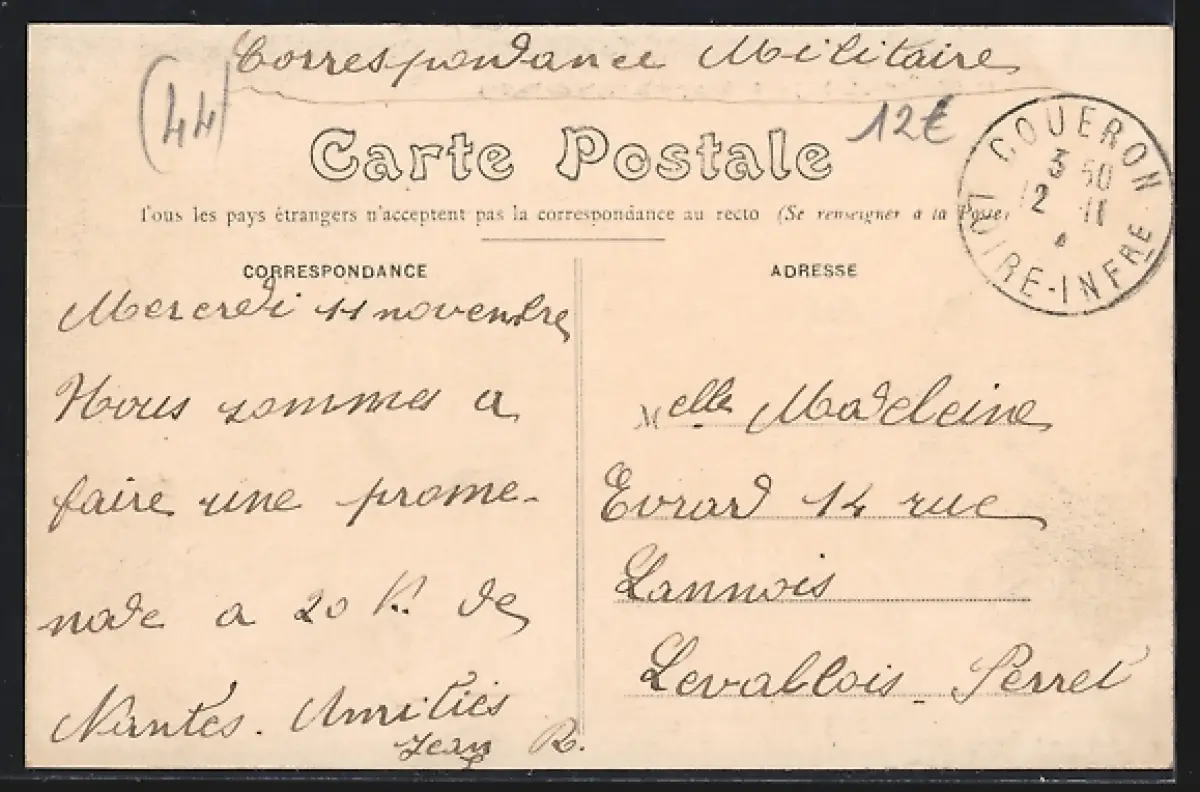 Correspondance Militaire
(44)
12€
Carte Postale
Tous les pays étrangers n'acceptent pas la correspondance au recto (Se renseigner à la Poste)
COUERON
3 50
12 11
LOIRE-INFRE
CORRESPONDANCE
Mercredi 11 novembre
Nous sommes a
faire une prome-
nade a 20 K. de
Nantes. Amitiés
Jean R.
ADRESSE
Melle Madeleine
Evrard 14 rue
Lannois
Levallois-Perret